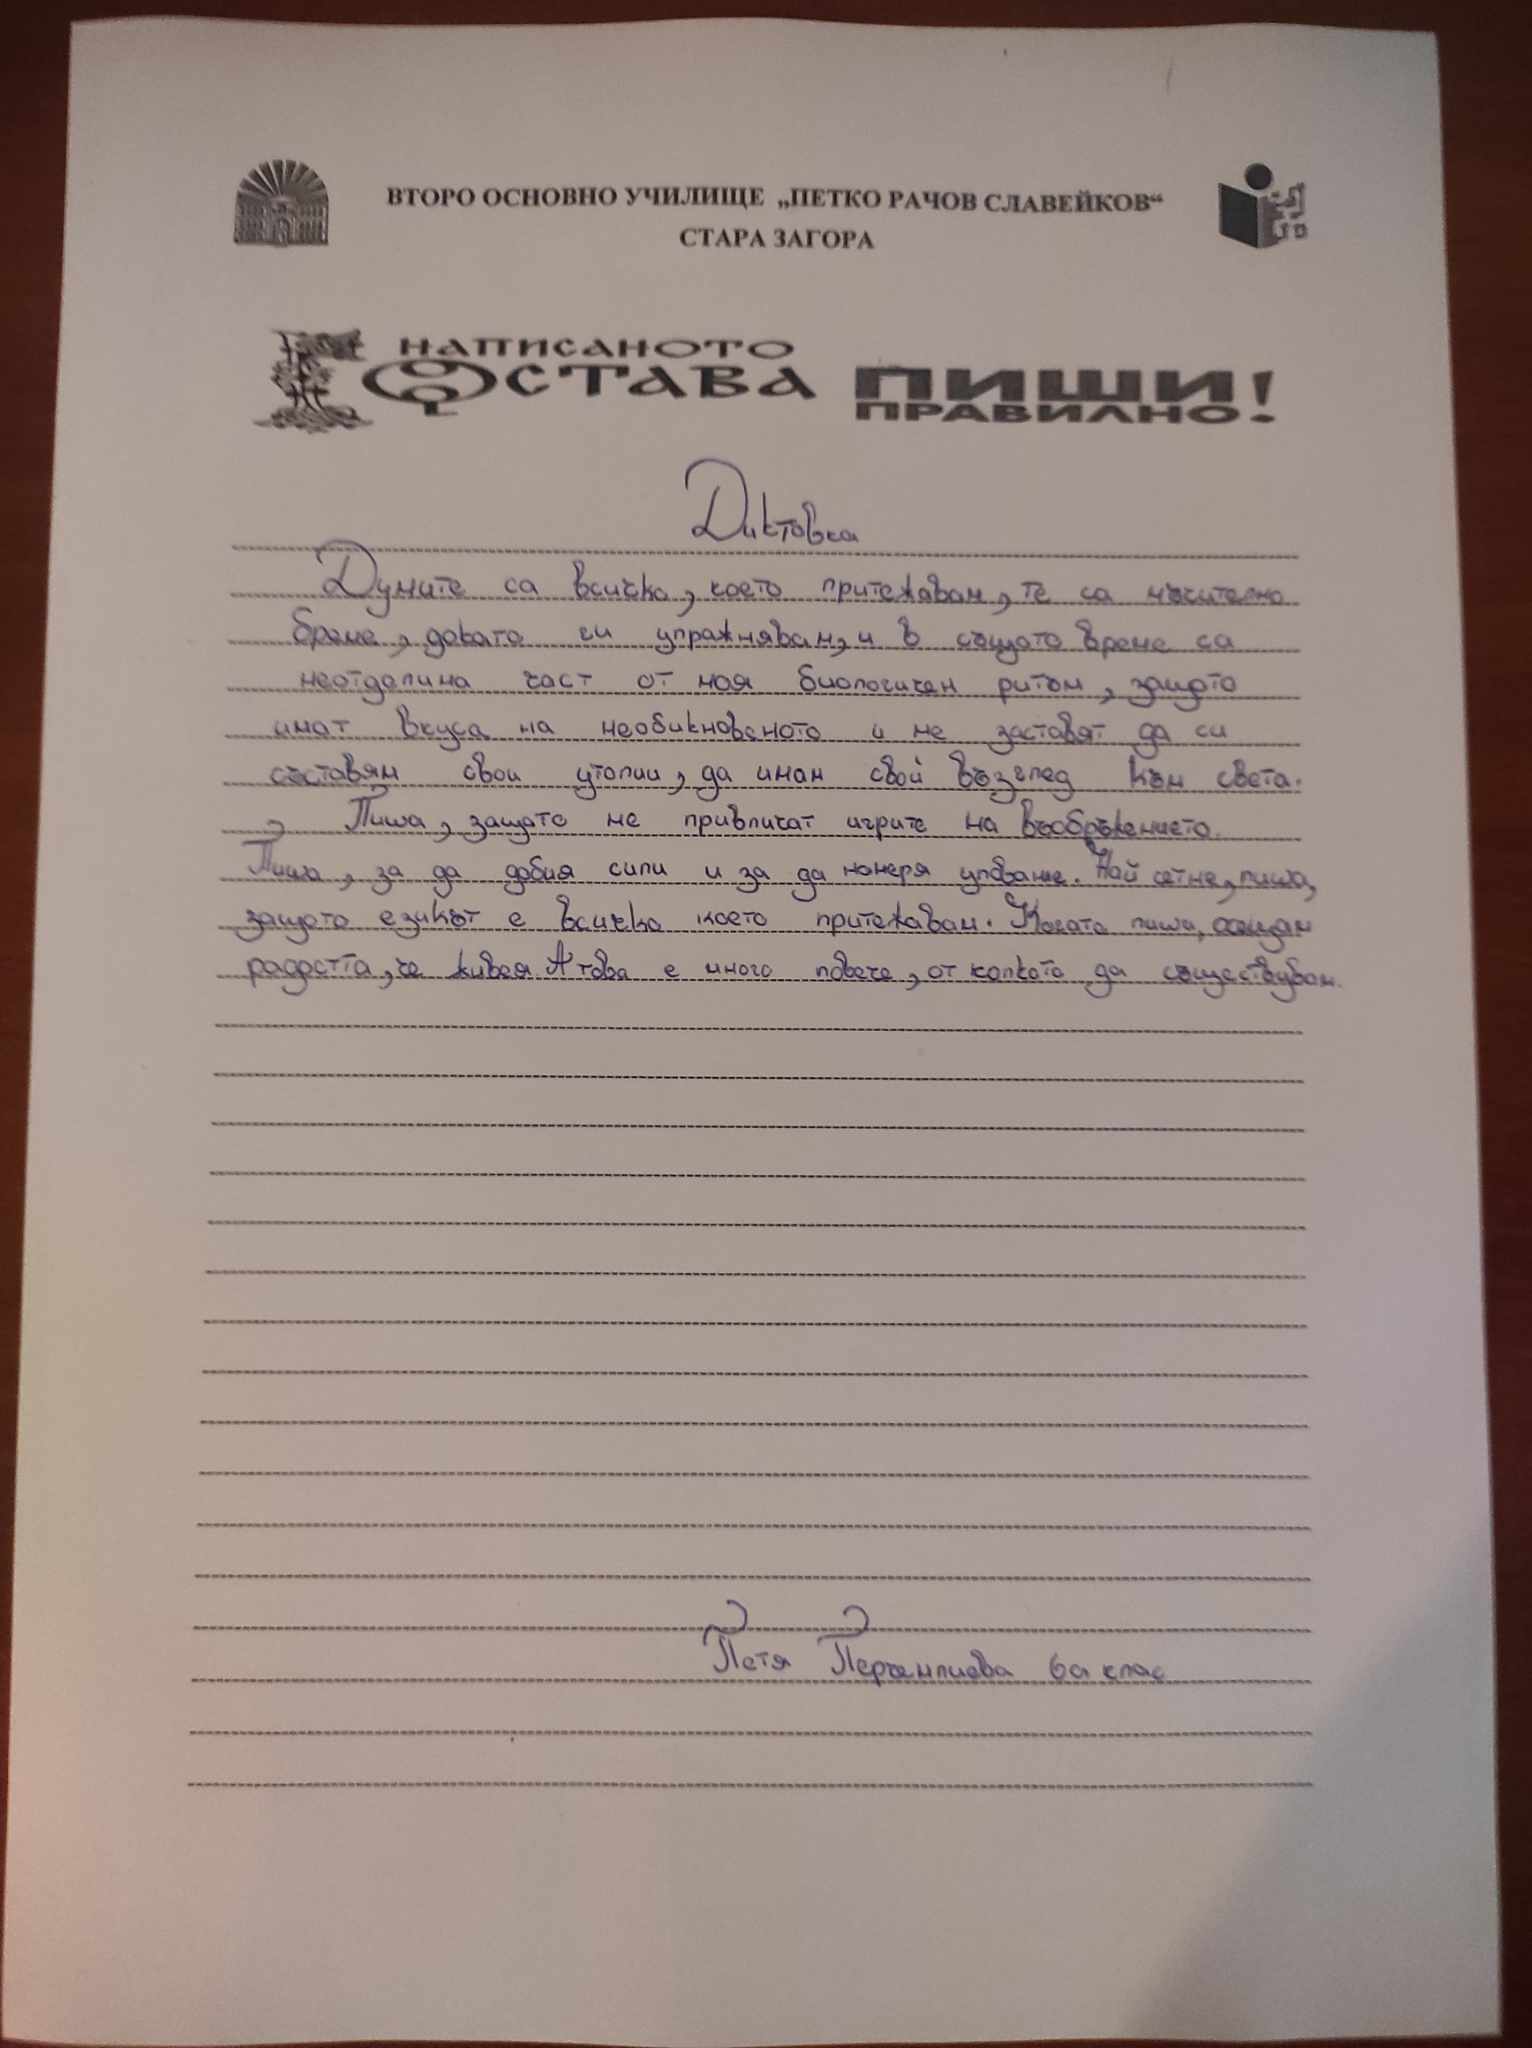 ВТОРО ОСНОВНО УЧИЛИЩЕ „ПЕТКО РАЧОВ СЛАВЕЙКОВ“
СТАРА ЗАГОРА
НАПИСАНОТО
ОСТАВА
ПИШИ
ПРАВИЛНО!
Диктовка
Думите са всичко, което притежавам, те са мъчително
бреме, докато ги упражнявам, и в същото време са
неотделима част от моя биологичен ритъм, защото
имат вкуса на необикновеното и ме заставят да си
съставям свои утопии, да имам свой възглед към света.
Пиша, защото ме привличат игрите на въображението.
Пиша, за да добия сили и за да намеря упование. Най сетне, пиша,
защото езикът е всичко което притежавам. Когато пиша, усещам
радостта, че живея. А това е много повече, от колкото да съществувам.
Петя 6а клас